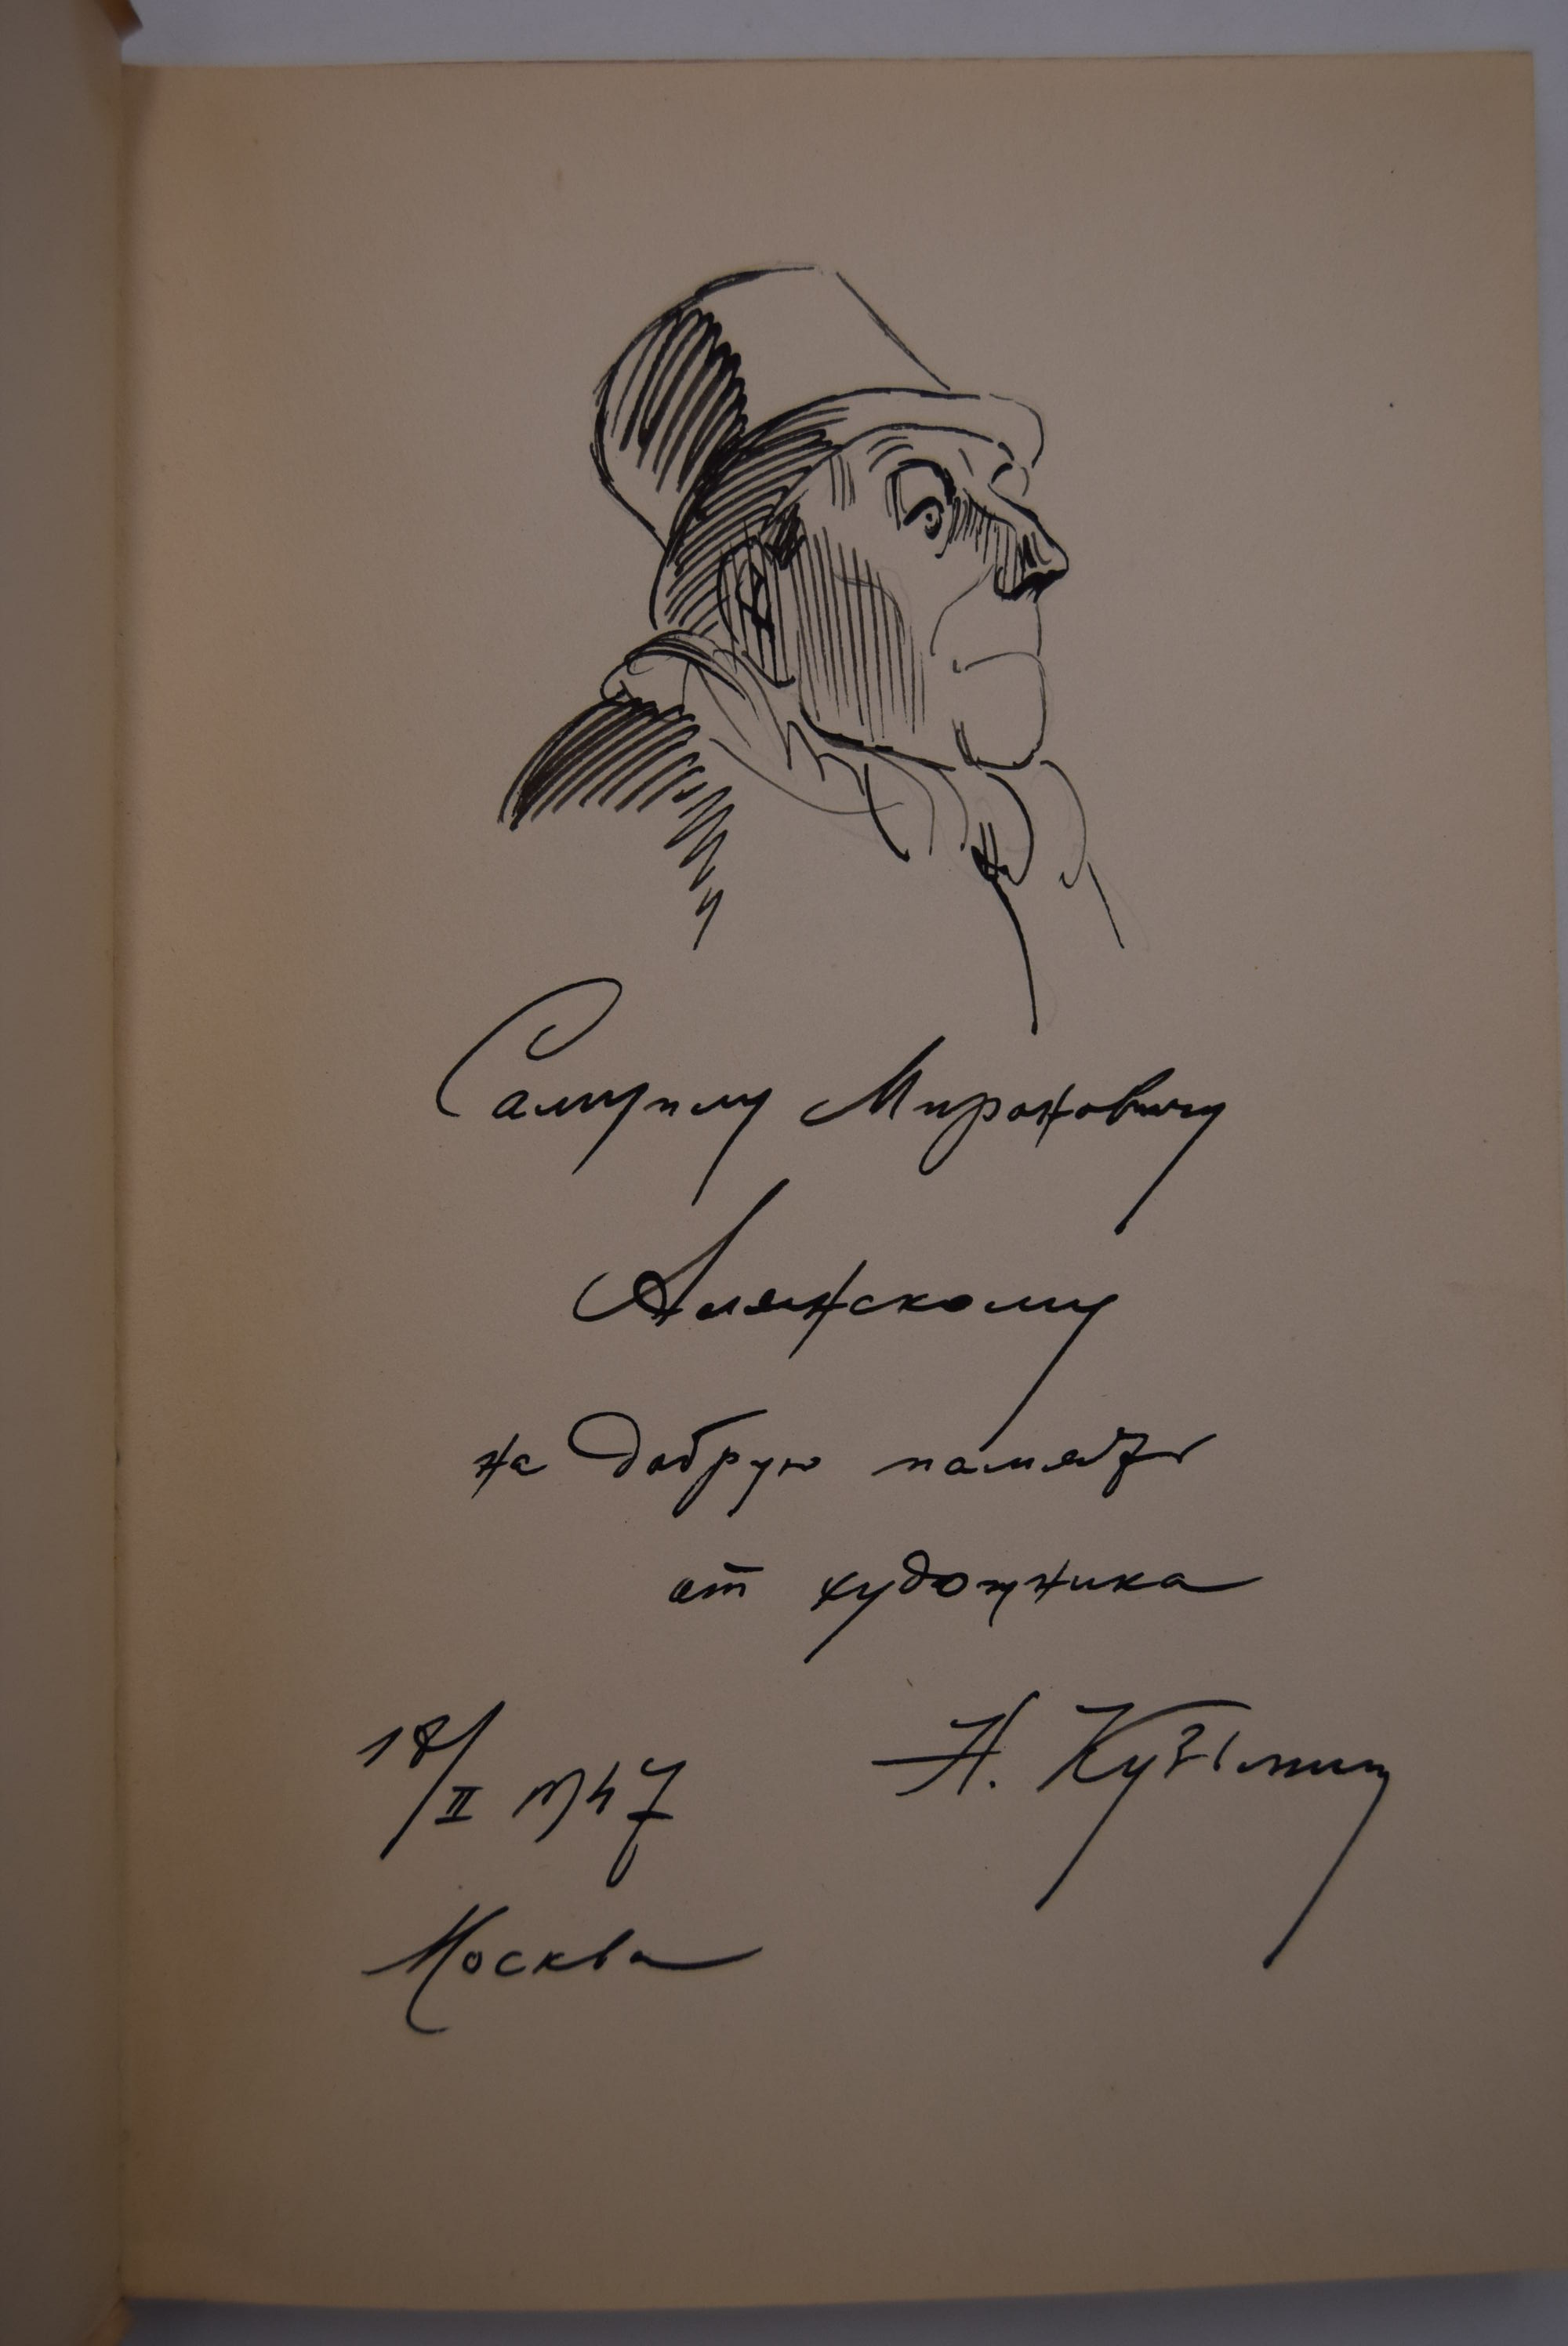 Самуилу Мироновичу
Алянскому
на добрую память
от художника
Н. Кузьмин
18/II 1947
Москва